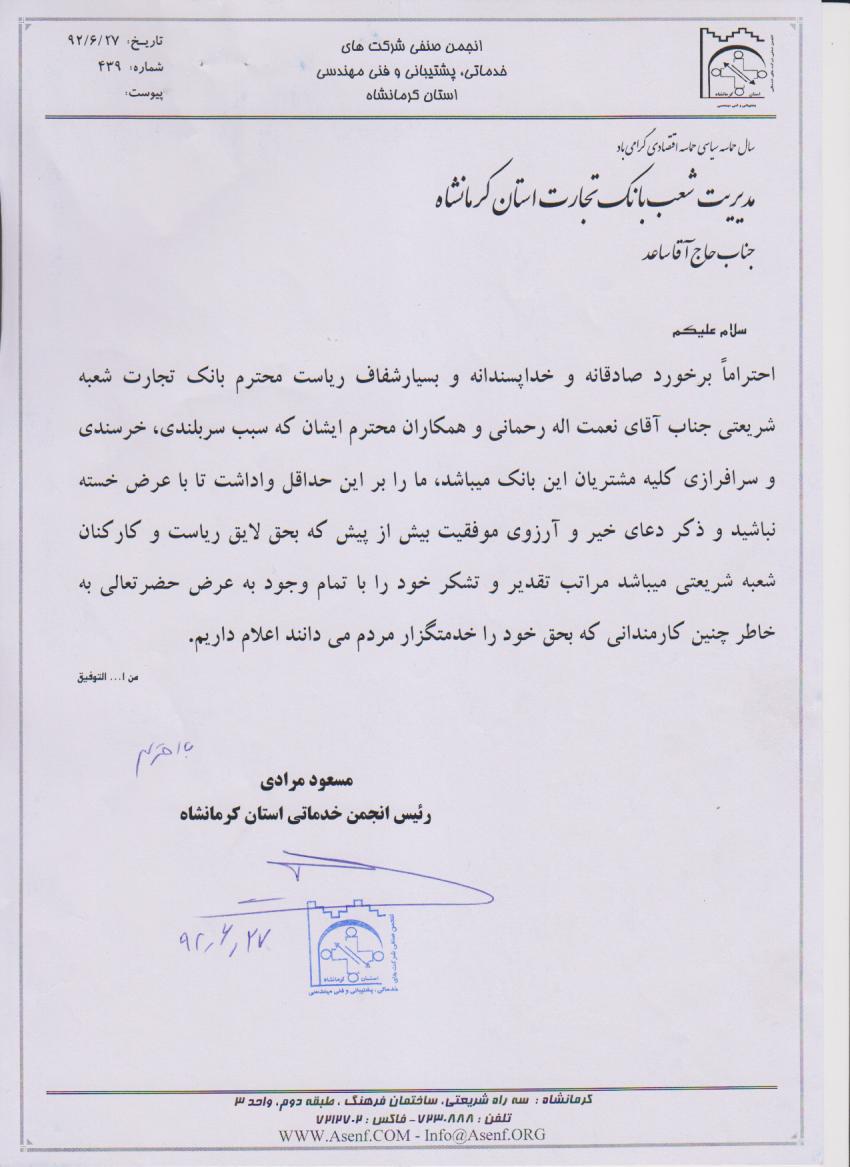 انجمن صنفی شرکت های
خدماتی، پشتیبانی و فنی مهندسی
استان کرمانشاه
تاریخ: ۹۲/۶/۲۷
شماره: ۴۳۹
پیوست:
استان کرمانشاه
پشتیبانی و فنی مهندسی
سال حماسه سیاسی حماسه اقتصادی گرامی باد
مدیریت شعب بانک تجارت استان کرمانشاه
جناب حاج آقا ساعد
سلام علیکم
احتراماً برخورد صادقانه و خداپسندانه و بسیارشفاف ریاست محترم بانک تجارت شعبه
شریعتی جناب آقای نعمت اله رحمانی و همکاران محترم ایشان که سبب سربلندی، خرسندی
و سرافرازی کلیه مشتریان این بانک میباشد، ما را بر این حداقل واداشت تا با عرض خسته
نباشید و ذکر دعای خیر و آرزوی موفقیت بیش از پیش که بحق لایق ریاست و کارکنان
شعبه شریعتی میباشد مراتب تقدیر و تشکر خود را با تمام وجود به عرض حضرتعالی به
خاطر چنین کارمندانی که بحق خود را خدمتگزار مردم می دانند اعلام داریم.
من ا... التوفیق
با احترام
مسعود مرادی
رئیس انجمن خدماتی استان کرمانشاه
۹۲/۶/۲۷
انجمن صنفی شرکت های
استان کرمانشاه
خدماتی، پشتیبانی و فنی مهندسی
کرمانشاه : سه راه شریعتی، ساختمان فرهنگ ، طبقه دوم، واحد ۳
تلفن : ۷۲۳۰۸۸۸ - فاکس : ۷۲۱۲۷۰۲
WWW.Asenf.COM - Info@Asenf.ORG